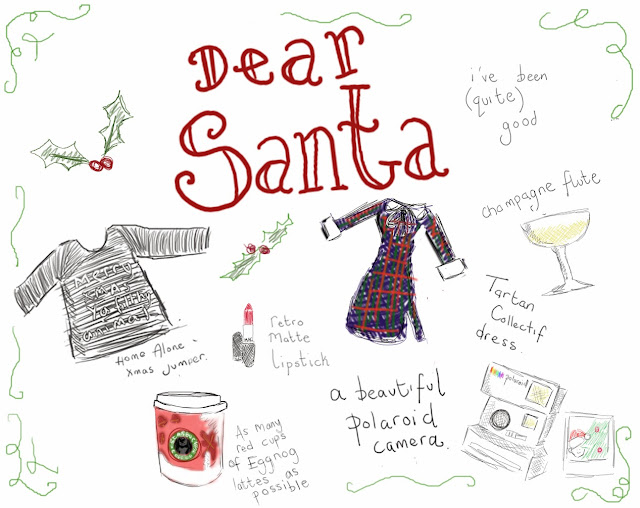 Dear
Santa
i've been
(quite)
good
champagne flute
MERRY
XMAS
YA FILTHY
ANIMAL
Home Alone
xmas jumper.
retro
Matte
lipstick
Tartan
Collectif
dress.
As many
red cups
of Eggnog
lattes as
possible
a beautiful
polaroid
camera.
polaroid